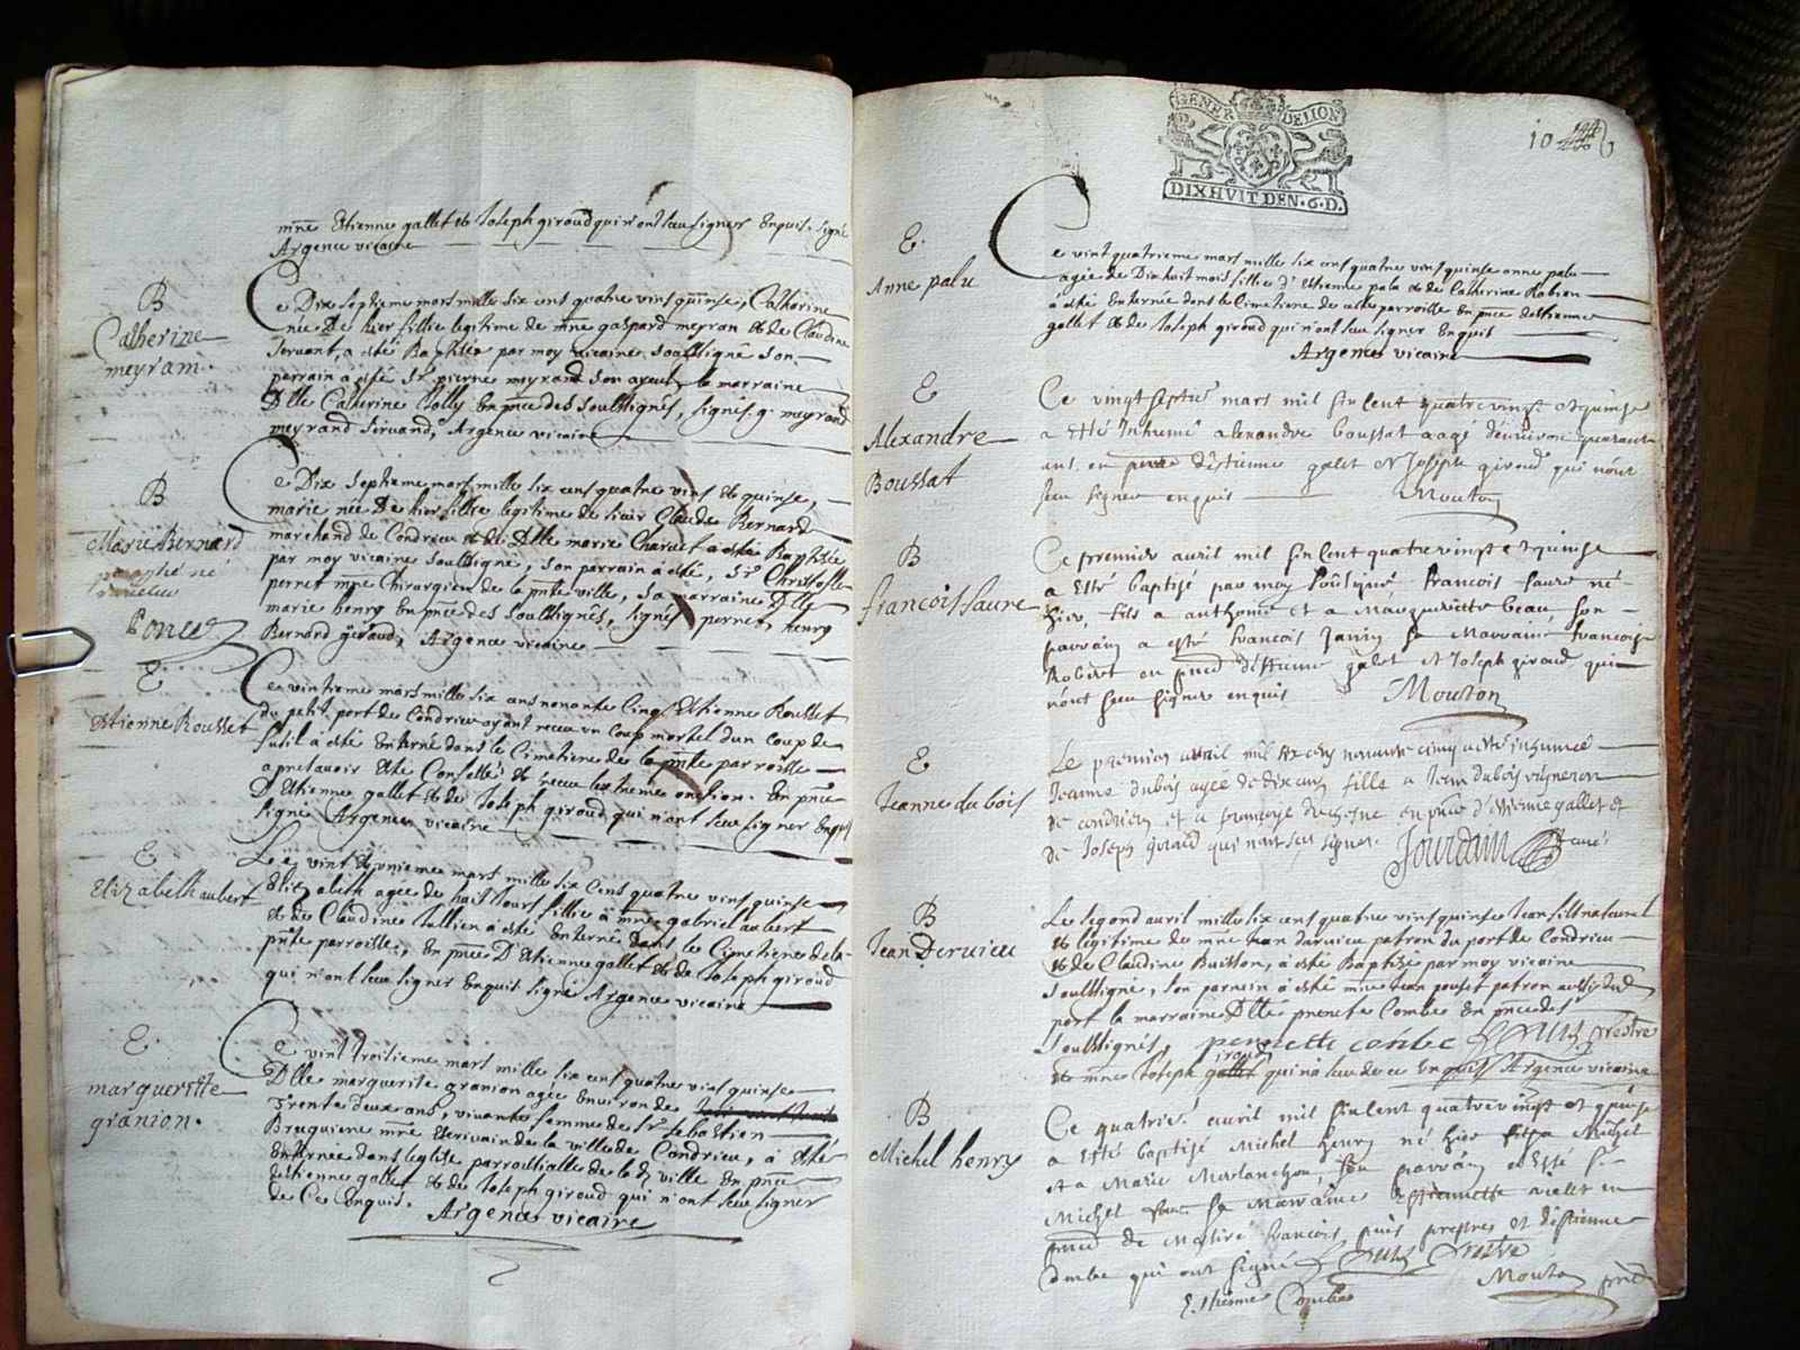 mre Estienne gallet et Joseph giroud qui n'ont sceu signer Enquis. signé
Argence vicaire
B
Catherine
meyram.
Ce Dix septieme mars mille six cens quatre vins quinse, Catherine
née De hier fillie legitime de mre gaspard meyran et de Claudine
servant, a esté Baptisée par moy vicaire soussigné son
parrain a esté Sr pierre meyrand son ayeul, la marraine
Dlle Catherine Jolly En pnce des soussignés, signés g. meyrand
meyrand servand, Argence vicaire
B
Marie Bernard
Ce Dix septieme mars mille six cens quatre vins et quinse,
marie née De hier fillie legitime de sieur Claude Bernard
marchand de Condrieu et de Dlle marie Charvet a esté Baptisée
par moy vicaire soussigné, son parrain a esté, Sr Christofle
pernet mre Chirurgien de la pnte ville, sa marraine Dlle
marie henry En pnce des soussignés, signés pernet, henry
Bernard giraud, Argence vicaire
E
Estienne Rousset
Ce vintieme mars mille six cens nonante Cinq Estienne Rousset
du petit port de Condrieu ayant receu un coup mortel d'un coup de
fusil a esté Enterré dans le Cimetiere de la pnte parroisse
apres avoir Esté Confessé et receu l'extreme onction. En pnce
D'Estienne gallet et de Joseph giroud qui n'ont sceu signer Enquis
signé Argence vicaire
E
Elizabeth aubert
Le vint et unieme mars mille six Cens quatre vins quinse
Elizabeth agée de huit Jours fillie à mre gabriel aubert
et de Claudine Jullien a esté Enterrée dans le Cimetiere de la
pnte parroisse, En pnce D'Estienne gallet et de Joseph giroud
qui n'ont sceu signer Enquis signé Argence vicaire
E
marguerite
granion.
Ce vint troisieme mars mille six cens quatre vins quinse
Dlle marguerite granion agée Environ de
Trente deux ans, vivante femme de Sr sebastien
Bruguiere mre Ecrivain de la ville de Condrieu, à esté
Enterrée dans leglise parroissialle de la d ville En pnce
destienne gallet et de Joseph giroud qui n'ont sceu signer
de Ce Enquis.
Argence vicaire
GENER DE LION
DIXHVIT DEN. 6. D.
10
E
Anne palu
Ce vint quatrieme mars mille six cens quatre vins quinse anne palu
agée de Dixhuit mois fillie d'Estienne palu et de Catherine Rabion
à esté Enterrée dans le Cimetiere de cette parroisse En pnce destienne
gallet et de Joseph giroud qui n'ont sceu signer Enquis
Argence vicaire
E
Alexandre
Boussat
Ce vingt septie mars mil six cent quatre vingt et quinse
a esté Inhumé alexandre boussat aagé denviron quarante
ans en pnce d'estienne galet et Joseph giroud qui nont
sceu signer enquis Mouton
B
francois faure
Ce premier avril mil six cent quatre vingt et quinse
a Esté baptisé par moy soussigné francois faure né
hier, fils a anthoine et a Marguerite beau son
parrain a esté francois Janin sa Marraine francoise
Robert en pnce d'estienne galet et Joseph giroud qui
nont sceu signer enquis Mouton
E
Jeanne dubois
Le premier avril mil six cens nonante cinq a esté inhumée
Jeanne dubois agée de dix ans fille a Jean dubois vigneron
de condrieu et a francoise duchesne en pnce d'estienne gallet et
de Joseph giraud qui n'ont sceu signer. Jourdain curé
B
Jean Dervieu
Le segond avril mille six cens quatre vins quinse Jean fils naturel
et legitime de mre Jean darvieu patron du port de Condrieu
et de Claudine Buisson, à esté Baptisé par moy vicaire
soussigné, son parrain à esté mre Jean pouset patron aussy dud
port la marraine Dlle pernete Combe En pnce des
soussignés, pernette conbe prestre
giroud
et mre Joseph gallet qui na sceu de ce Enquis Argence vicaire
B
Michel henry
Ce quatrie avril mil six cent quatre vingt et quinse
a esté baptisé Michel henry né hier fils a Michel
et a Marie Marlanchon, son parrain a esté Sr
Michel sa Marraine Estiennette violet en
pnce de Messire francois puis prestre et d'estienne
Combe qui ont signé puis prestre
Estienne Combe Mouton